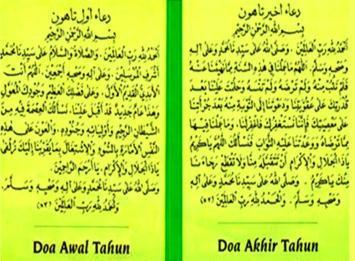 دعاء أول تاهون
بسم الله الرحمن الرحيم
الحمد لله رب العالمين . والصلاة والسلام على سيدنا محمد
أشرف المرسلين . وعلى آله وصحبه أجمعين . اللهم أنت
الأبدي القديم الأول . وعلى فضلك العظيم وجودك المعول .
وهذا عام جديد قد أقبل علينا . نسألك العصمة فيه من
الشيطان الرجيم وأوليائه وجنوده . والعون على هذه
النفس الأمارة بالسوء . والاشتغال بما يقربنا إليك زلفى
ياذا الجلال والإكرام . يا أرحم الراحمين .
وصلى الله على سيدنا محمد وعلى آله وصحبه وسلم .
والحمد لله رب العالمين
Doa Awal Tahun
دعاء أخير تاهون
بسم الله الرحمن الرحيم
الحمد لله رب العالمين . وصلى الله على سيدنا محمد وعلى آله
وصحبه وسلم . اللهم ما عملنا في هذه السنة مما نهيتنا عنه
فلم نتب منه ولم ترضه ولم تنسه وحلمت علينا بعد
قدرتك على عقوبتنا ودعوتنا إلى التوبة منه بعد جرأتنا
على معصيتك فإنا نستغفرك فاغفر لنا . وما عملنا فيها
مما ترضاه ووعدتنا عليه الثواب فنسألك اللهم يا كريم
ياذا الجلال والإكرام أن تتقبله منا ولا تقطع رجاءنا
منك يا كريم . وصلى الله على سيدنا محمد وعلى آله
وصحبه وسلم . والحمد لله رب العالمين
Doa Akhir Tahun